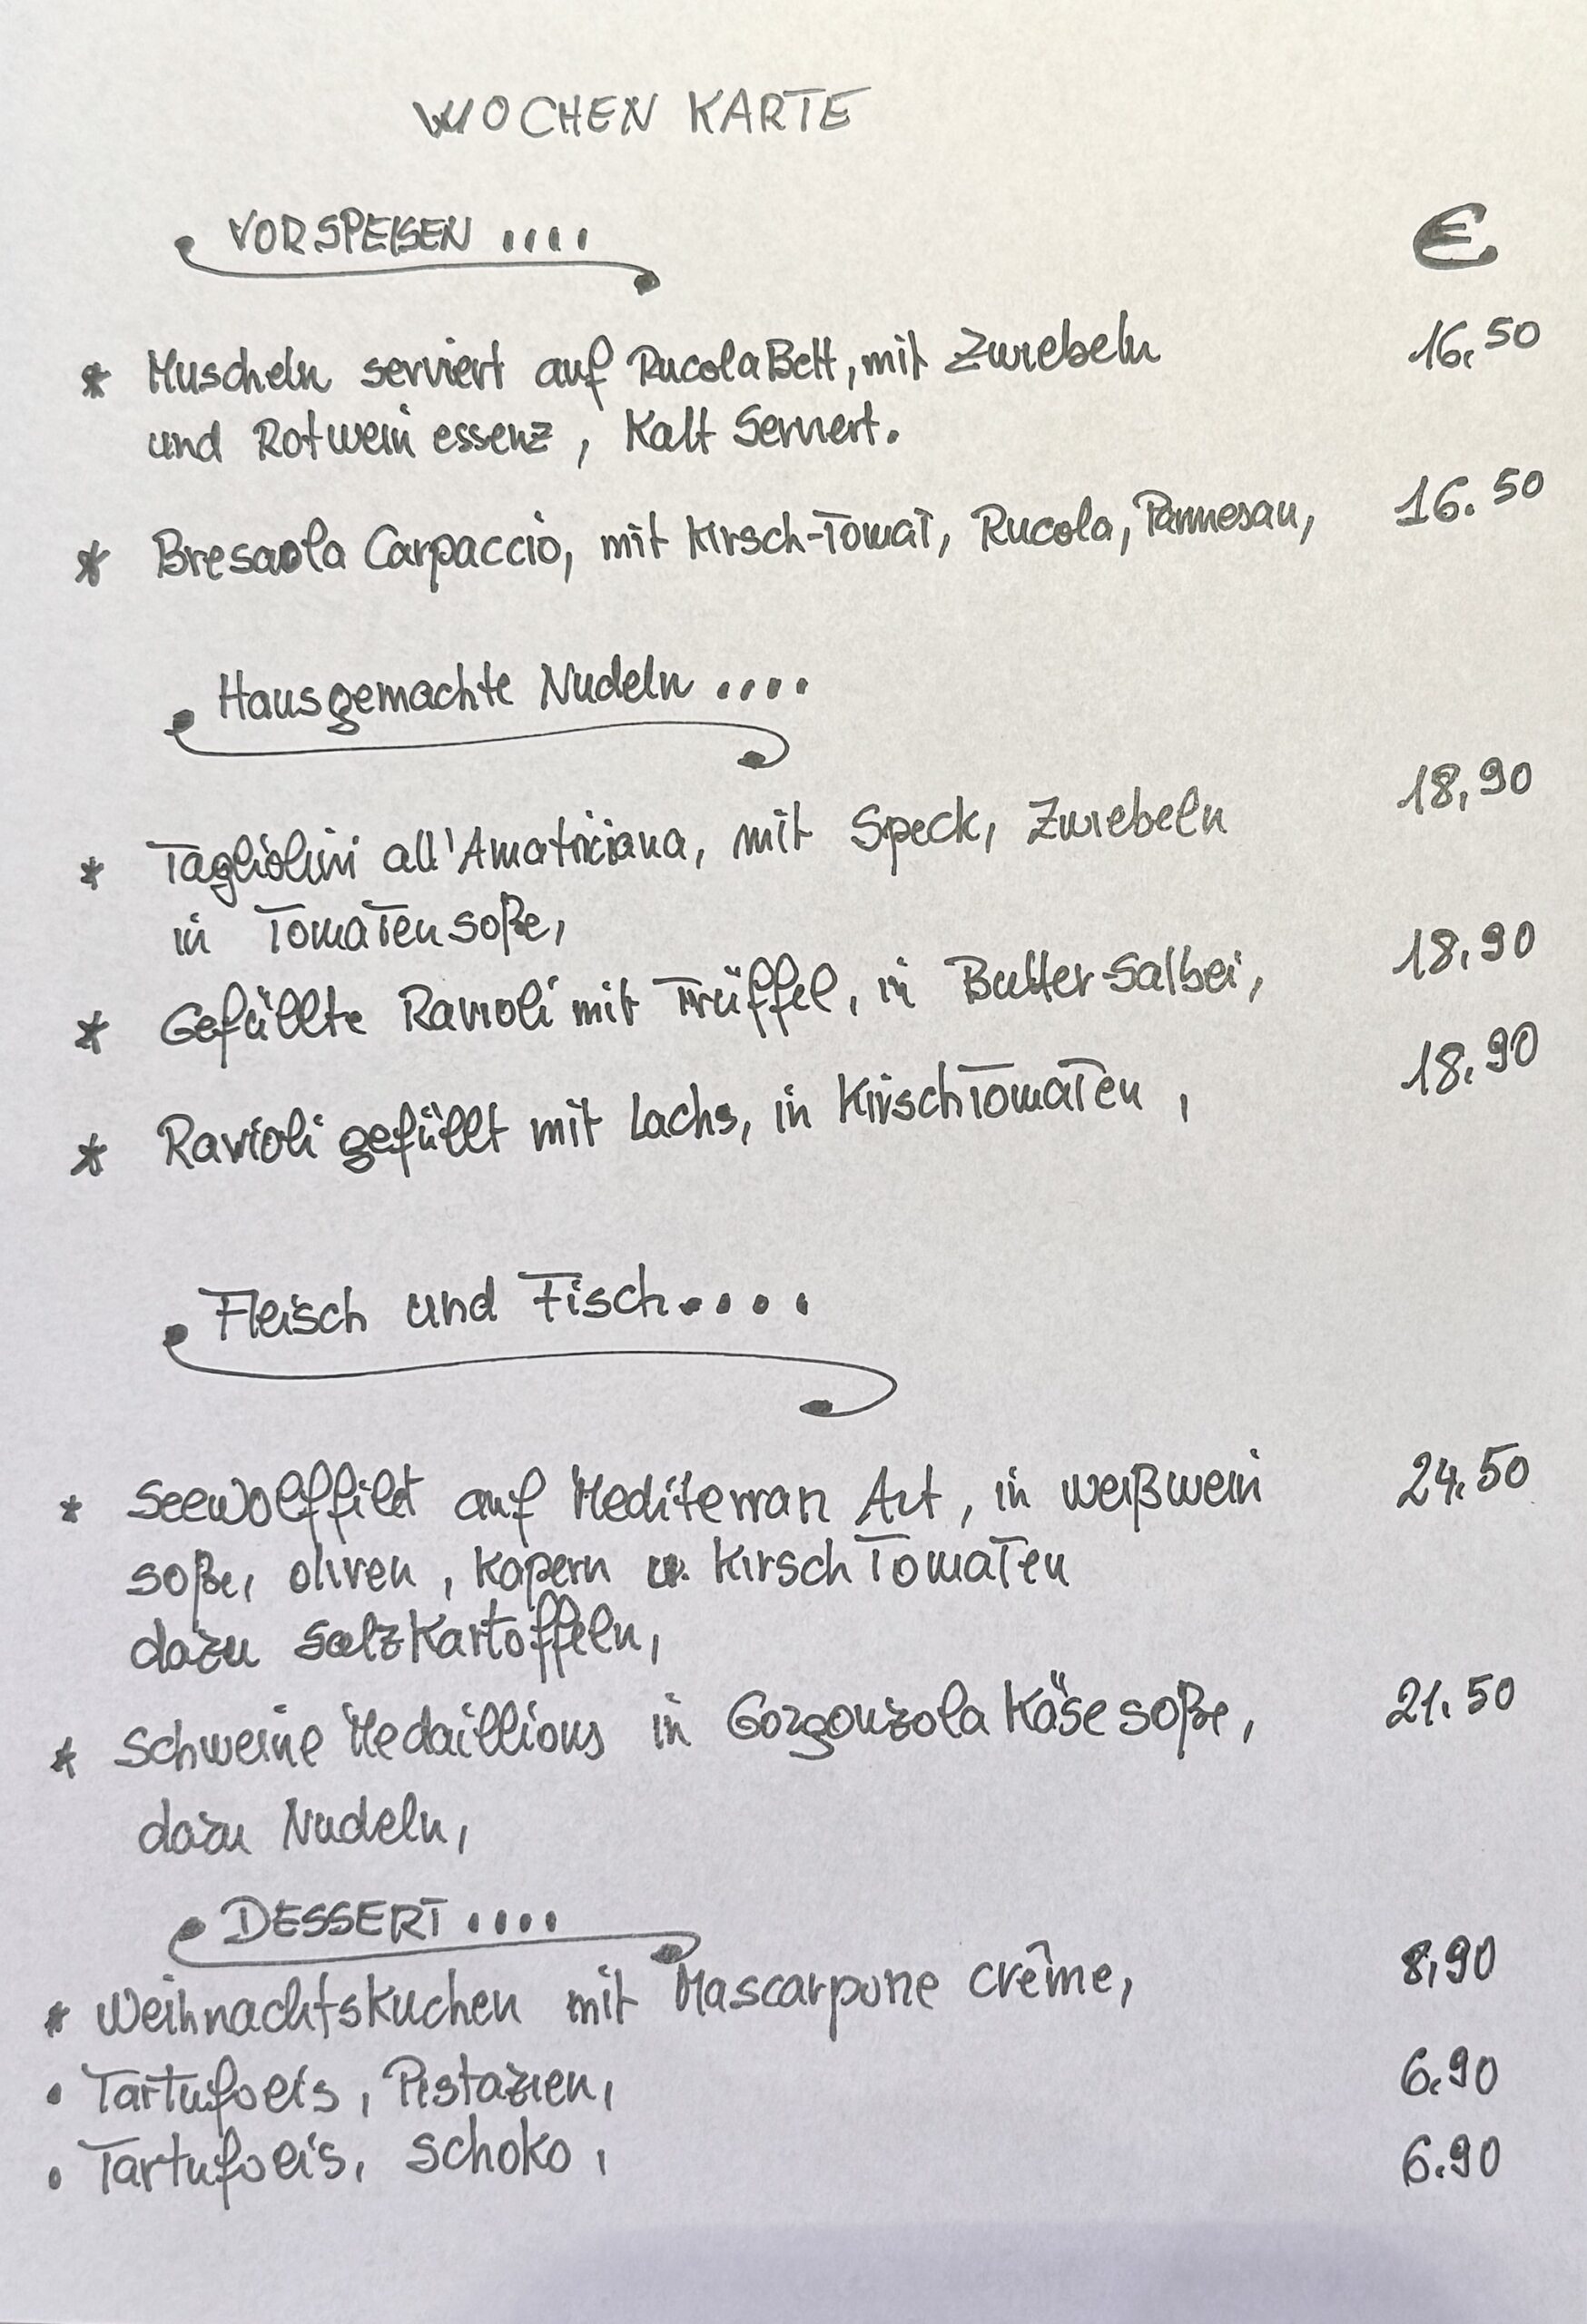 WOCHEN KARTE
VORSPEISEN ....
€
* Muscheln serviert auf RucolaBett, mit Zwiebeln 16.50
und Rotwein essenz, Kalt Serviert.
* Bresaola Carpaccio, mit Kirsch-Tomat, Rucola, Parmesan, 16.50
Hausgemachte Nudeln ....
* Tagliolini all'Amatriciana, mit Speck, Zwiebeln 18,90
in Tomatensoße,
* Gefüllte Ravioli mit Trüffel, in Butter-Salbei, 18.90
* Ravioli gefüllt mit Lachs, in KirschTomaTen, 18.90
Fleisch und Fisch....
* Seewolffilet auf Mediterran Art, in weißwein 24.50
soße, oliven, Kapern u. Kirsch Tomaten
dazu SalzKartoffeln,
* Schweine Medaillions in Gorgonzola Käse soße, 21.50
dazu Nudeln,
DESSERT ....
* Weihnachtskuchen mit Mascarpone crême, 8,90
• Tartufoeis, Pistazien, 6.90
• Tartufoeis, Schoko, 6.90